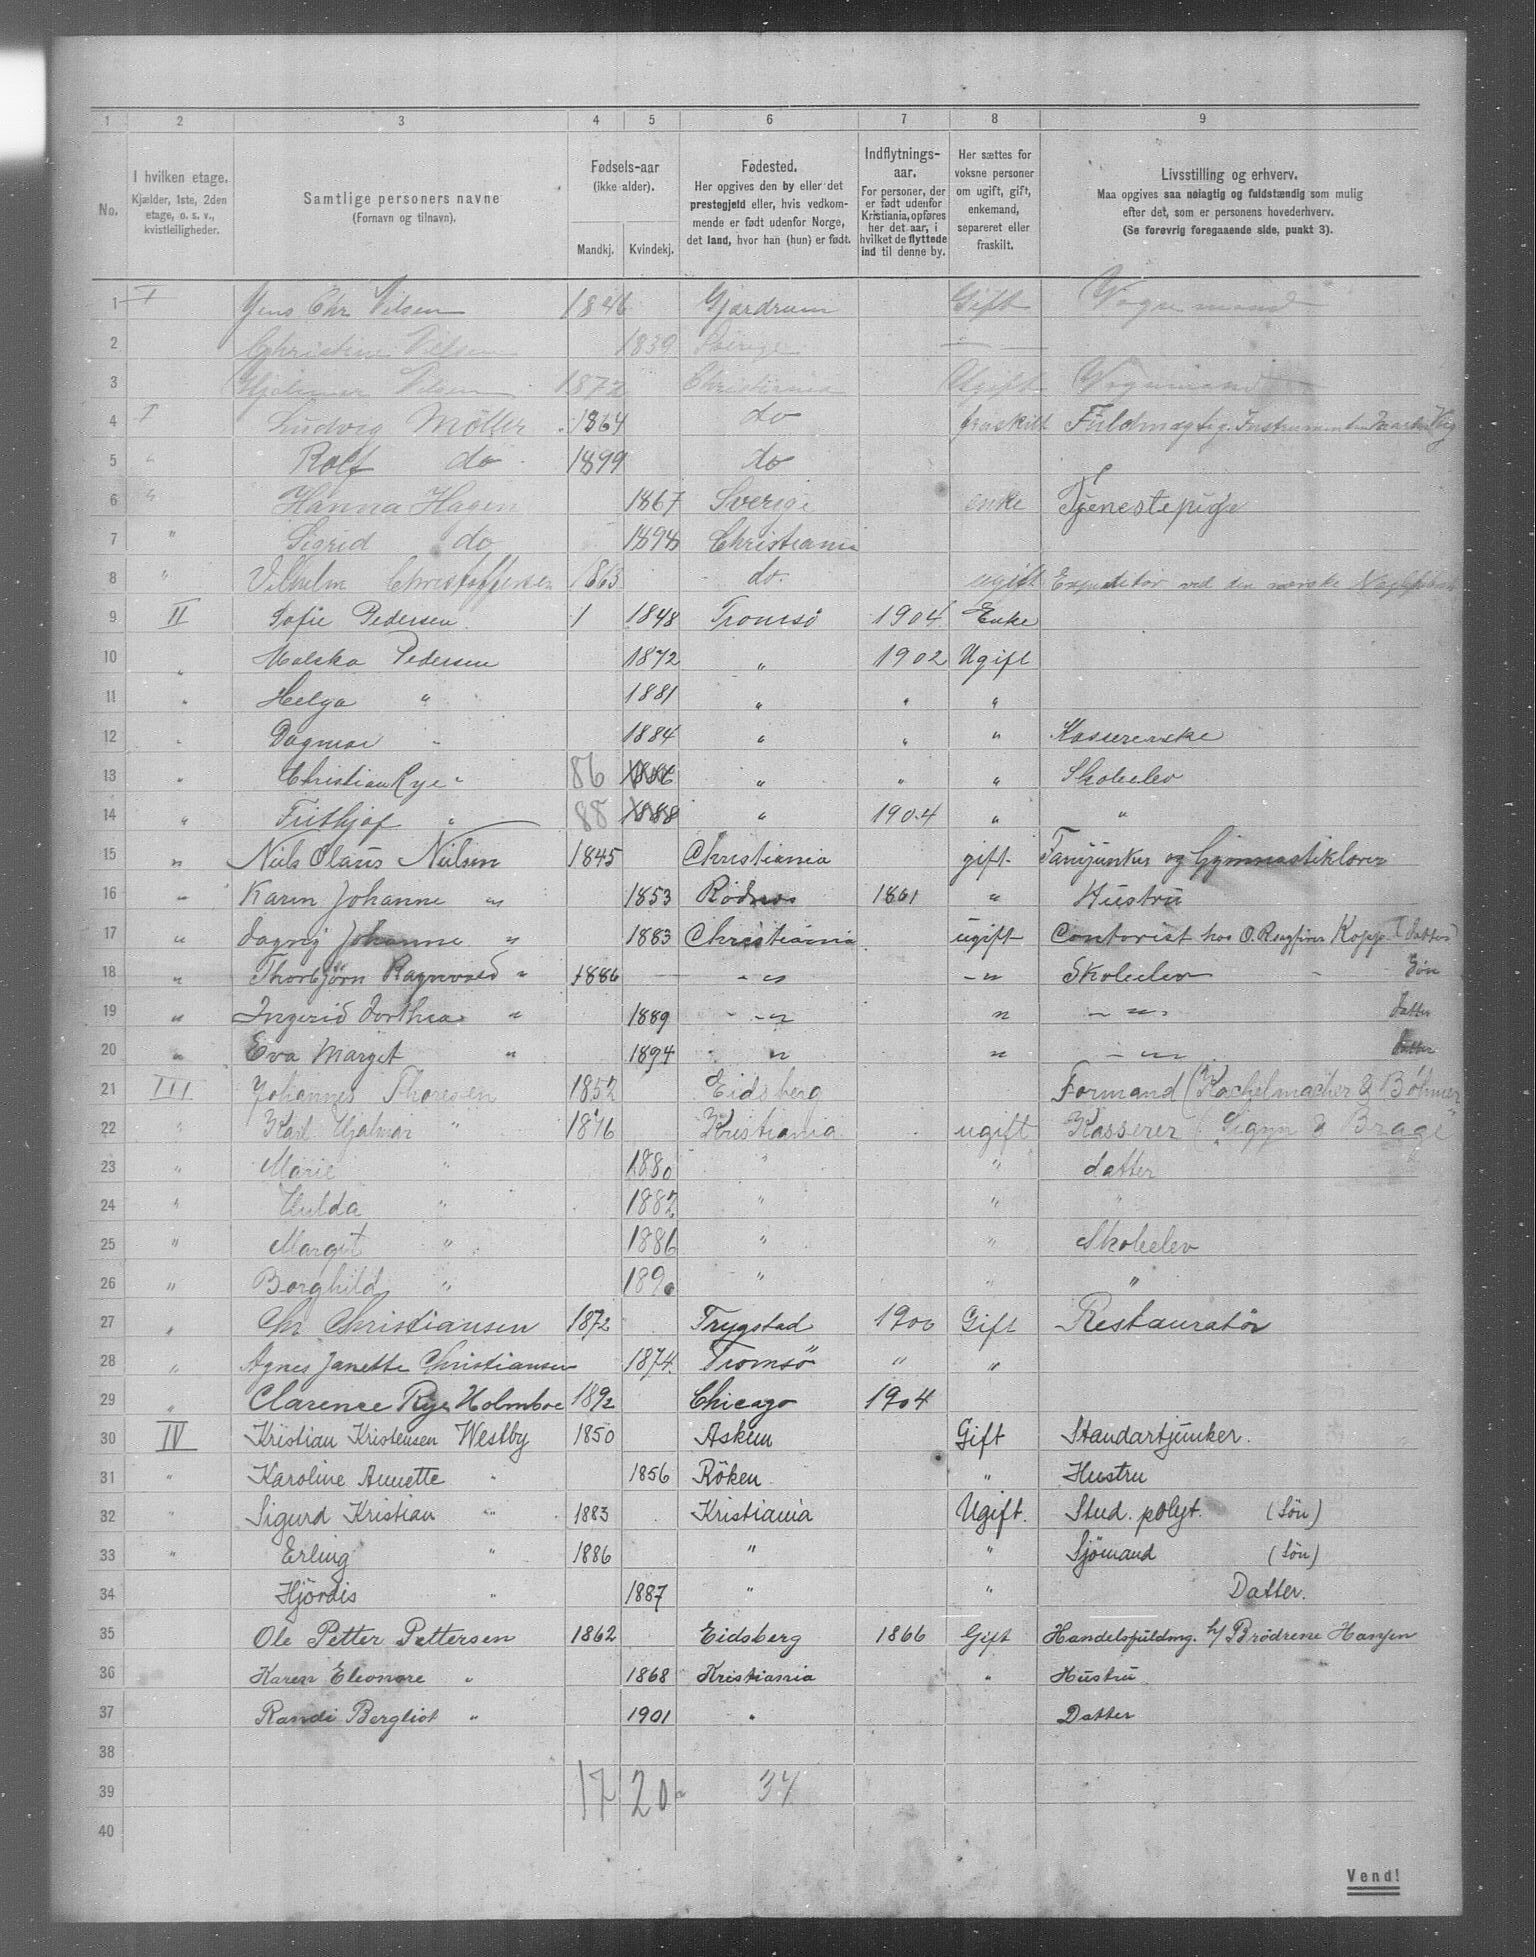 1 2 3 4 5 6 7 8 9
No.
I hvilken etage.
Kjælder, 1ste, 2den
etage, o. s. v.,
kvistleiligheder.
Samtlige personers navne
(Fornavn og tilnavn).
Fødsels-aar
(ikke alder).
Mandkj. Kvindekj.
Fødested.
Her opgives den by eller det
prestegjeld eller, hvis vedkom-
mende er født udenfor Norge,
det land, hvor han (hun) er født.
Indflytnings-
aar.
For personer, der
er født udenfor
Kristiania, opføres
her det aar, i
hvilket de flyttede
ind til denne by.
Her sættes for
voksne personer
om ugift, gift,
enkemand,
separeret eller
fraskilt.
Livsstilling og erhverv.
Maa opgives saa nøiagtig og fuldstændig som mulig
efter det, som er personens hovederhverv.
(Se forøvrig foregaaende side, punkt 3).
1 I Jens Chr Nilsen 1846 Gjærdrum Gift Vognmand
2 Christine Nilsen 1839 Sverige — " —
3 Hjalmar Nilsen 1872 Christiania Ugift Vognmand
4 I Ludvig Möller 1864 do fraskilt Fuldmægtig
5 " Rolf do 1899 do
6 " Hanna Hagen 1867 Sverige enke Tjenestepige
7 " Sigrid do 1898 Christiania
8 " Vilhelm Christoffersen 1863 do. ugift Expeditør ved den norske
9 II Sofie Pedersen 1 1848 Tromsö 1904 Enke
10 " Malska Pedersen 1872 " 1902 Ugift
11 " Helga " 1881 " " "
12 " Dagmar " 1884 " " " Kassererske
13 " Christian Rye " 86 1886 " " " Skoleelev
14 " Frithjof " 88 1888 " 1904 " "
15 " Nils Olaus Nielsen 1845 Christiania gift Fanejunker og Gymnastiklærer
16 " Karen Johanne " 1853 Rödnes 1861 " Hustru
17 " Dagny Johanne " 1883 Christiania ugift Contorist hos O. Kopp (datter)
18 " Thorbjörn Ragnvald " 1886 " " Skoleelev Sön
19 " Ingerid Dorthea " 1889 " " " datter
20 " Eva Margit " 1894 " " " datter
21 III Johannes Thoresen 1852 Eidsberg Formand (Kachelmacher & Böhmer
22 " Karl Hjalmar " 1876 Kristiania ugift Kasserer ( Sigyn & Brage
23 " Marie " 1880 " " datter
24 " Hulda " 1882 " " "
25 " Margit " 1886 " " Skoleelev
26 " Borghild " 1890 " " "
27 " Chr Christiansen 1872 Trygstad 1900 Gift Restauratör
28 " Agnes Janette Christiansen 1874 Tromsö " "
29 " Clarence Rye Holmboe 1892 Chicago 1904
30 IV Kristian Kristensen Westby 1850 Askim Gift Standartjunker.
31 " Karoline Annette " 1856 Röken " Hustru
32 " Sigurd Kristian " 1883 Kristiania Ugift. Stud. polyt. (Sön)
33 " Erling " 1886 " " Sjömand (Sön)
34 Hjördis " 1887 " " Datter.
35 Ole Petter Pettersen 1862 Eidsberg 1866 Gift Handelsfuldmg. h/ Brödrene Hansen
36 Karen Eleonore " 1868 Kristiania " Hustru
37 Randi Bergliot " 1901 " Datter
38
39 17 20 37
40
Vend!